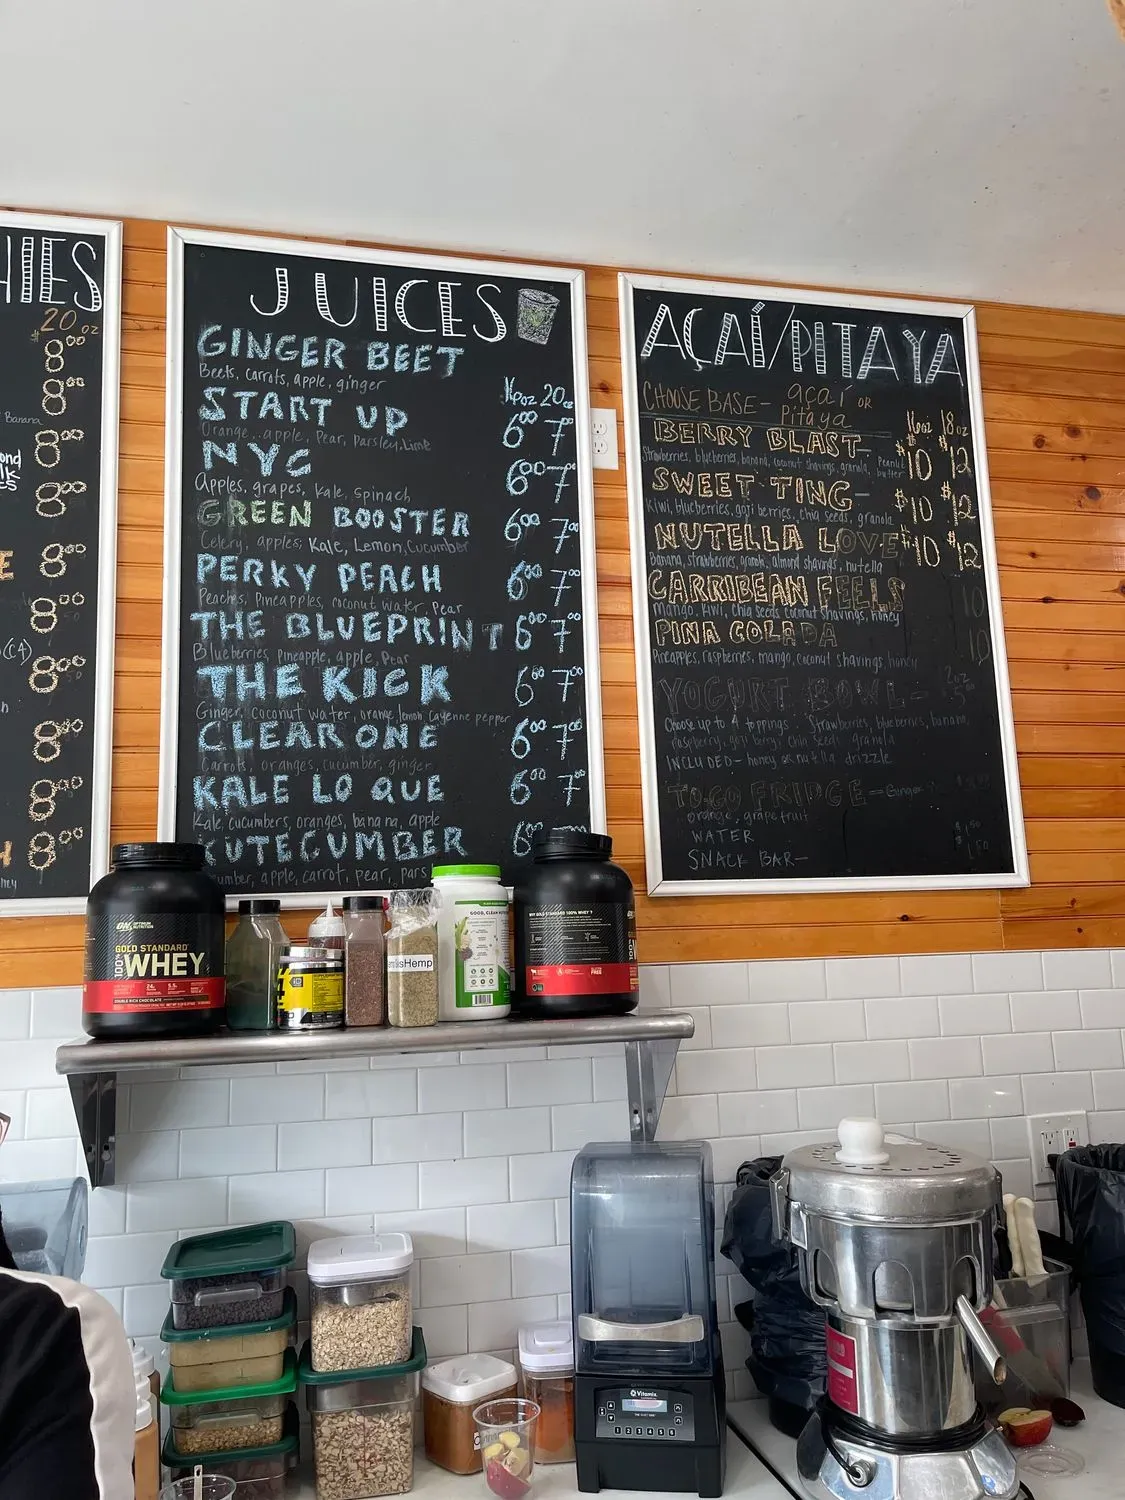 HIES
20 oz
8⁰⁰
8⁰⁰
Banana
8⁰⁰
8⁰⁰
8⁰⁰
8
(C4)
8⁰⁰
8
8⁰⁰
8
JUICES
16oz 20oz
GINGER BEET
Beets, carrots, apple, ginger
START UP 6⁰⁰ 7⁰⁰
Orange, apple, Pear, parsley, Lime
NYC 6⁰⁰ 7⁰⁰
Apples, grapes, kale, spinach
GREEN BOOSTER 6⁰⁰ 7⁰⁰
Celery, apples, Kale, Lemon, Cucumber
PERKY PEACH 6⁰⁰ 7⁰⁰
Peaches, Pineapples, coconut water, Pear
THE BLUEPRINT 6⁰⁰ 7⁰⁰
Blueberries, Pineapple, apple, Pear
THE KICK 6⁰⁰ 7⁰⁰
Ginger, coconut water, orange, lemon, cayenne pepper
CLEAR ONE 6⁰⁰ 7⁰⁰
Carrots, oranges, cucumber, ginger
KALE LO QUE 6⁰⁰ 7⁰⁰
Kale, cucumbers, oranges, banana, apple
KUTECUMBER 6⁰⁰
umber, apple, carrot, pear, pars
AÇAÍ/PITAYA
CHOOSE BASE- açaí OR
pitaya
16oz 18oz
BERRY BLAST- $10 $12
Strawberries, blueberries, banana, coconut shavings, granola, Peanut butter
SWEET TING- $10 $12
Kiwi, blueberries, goji berries, chia seeds, granola
NUTELLA LOVE $10 $12
Banana, strawberries, granola, almond shavings, nutella
CARRIBEAN FEELS 10
Mango, Kiwi, chia seeds, coconut shavings, honey
PINA COLADA 10
Pineapples, raspberries, mango, coconut shavings, honey
YOGURT BOWL-
Choose up to 4 toppings. Strawberries, blueberries, banana,
raspberry, goji berry, chia seeds, granola
INCLUDED- honey or nutella drizzle
TO-GO FRIDGE- Ginger
orange, grapefruit
WATER
SNACK BAR-
ON OPTIMUM NUTRITION
GOLD STANDARD
100% WHEY
DOUBLE RICH CHOCOLATE
Hemp
GOOD, CLEAN
GOLD STANDARD 100% WHEY
Vitamix
1 2 3 4 5 6